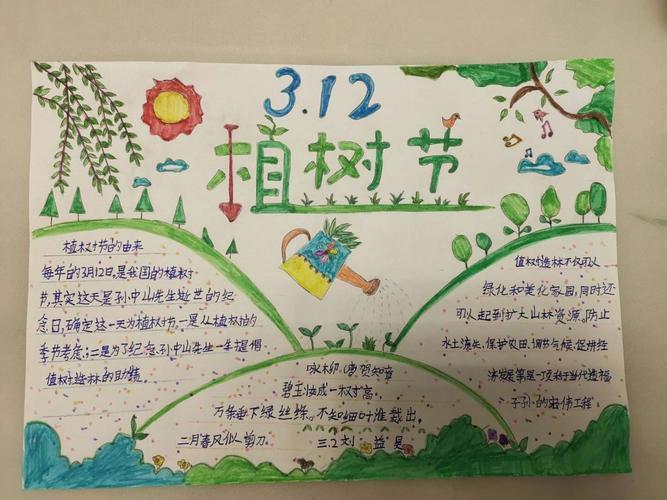 3.12
植树节
植树节的由来
每年的3月12日,是我国的植树
节,其实这天是孙中山先生逝世的纪
念日,确定这一天为植树节一是从植树的
季节考虑;二是为了纪念孙中山先生一生提倡
植树造林的功绩。
植树造林不仅可以
绿化和美化家园,同时还
可以起到扩大山林资源。防止
水土流失,保护农田,调节气候,促进经
济发展等是一项利于当代造福
子孙的宏伟工程
咏柳(唐)贺知章
碧玉妆成一树高,
万条垂下绿丝绦。不知细叶谁裁出,
二月春风似剪刀。
三.2 刘益